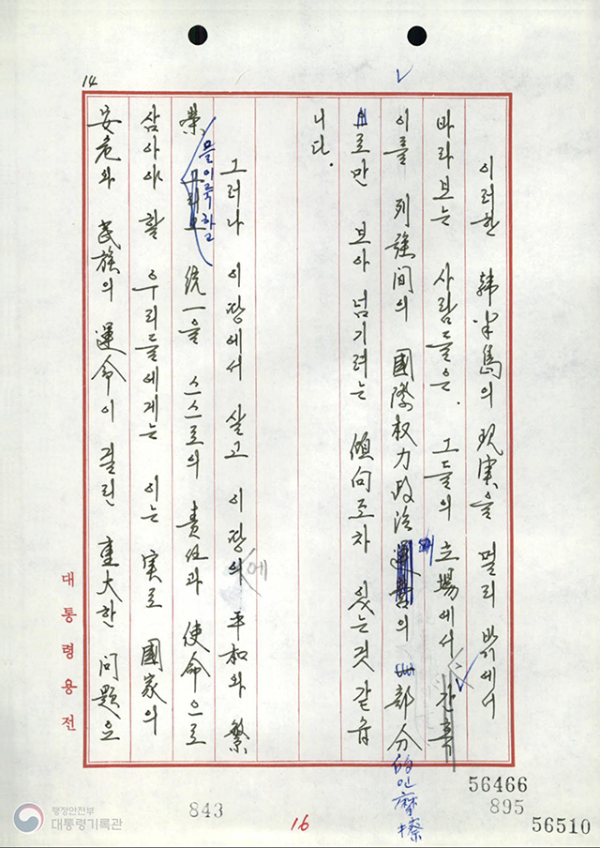 14
이러한 韓半島의 現実을 멀리 밖에서
바라보는 사람들은. 그들의 立場에서 간혹
이를 列強間의 國際权力政治의 部分的인 摩擦
로만 보아 넘기려는 傾向조차 있는것 같습
니다.
그러나 이 땅에서 살고 이 땅의 에 平和와 繁
榮을 이룩하고 그리고 統一을 스스로의 責任과 使命으로
삼아야 할 우리들에게는 이는 実로 國家의
安危와 民族의 運命이 걸린 重大한 问題요
대통령용전
56466
895
843
16
56510
행정안전부
대통령기록관